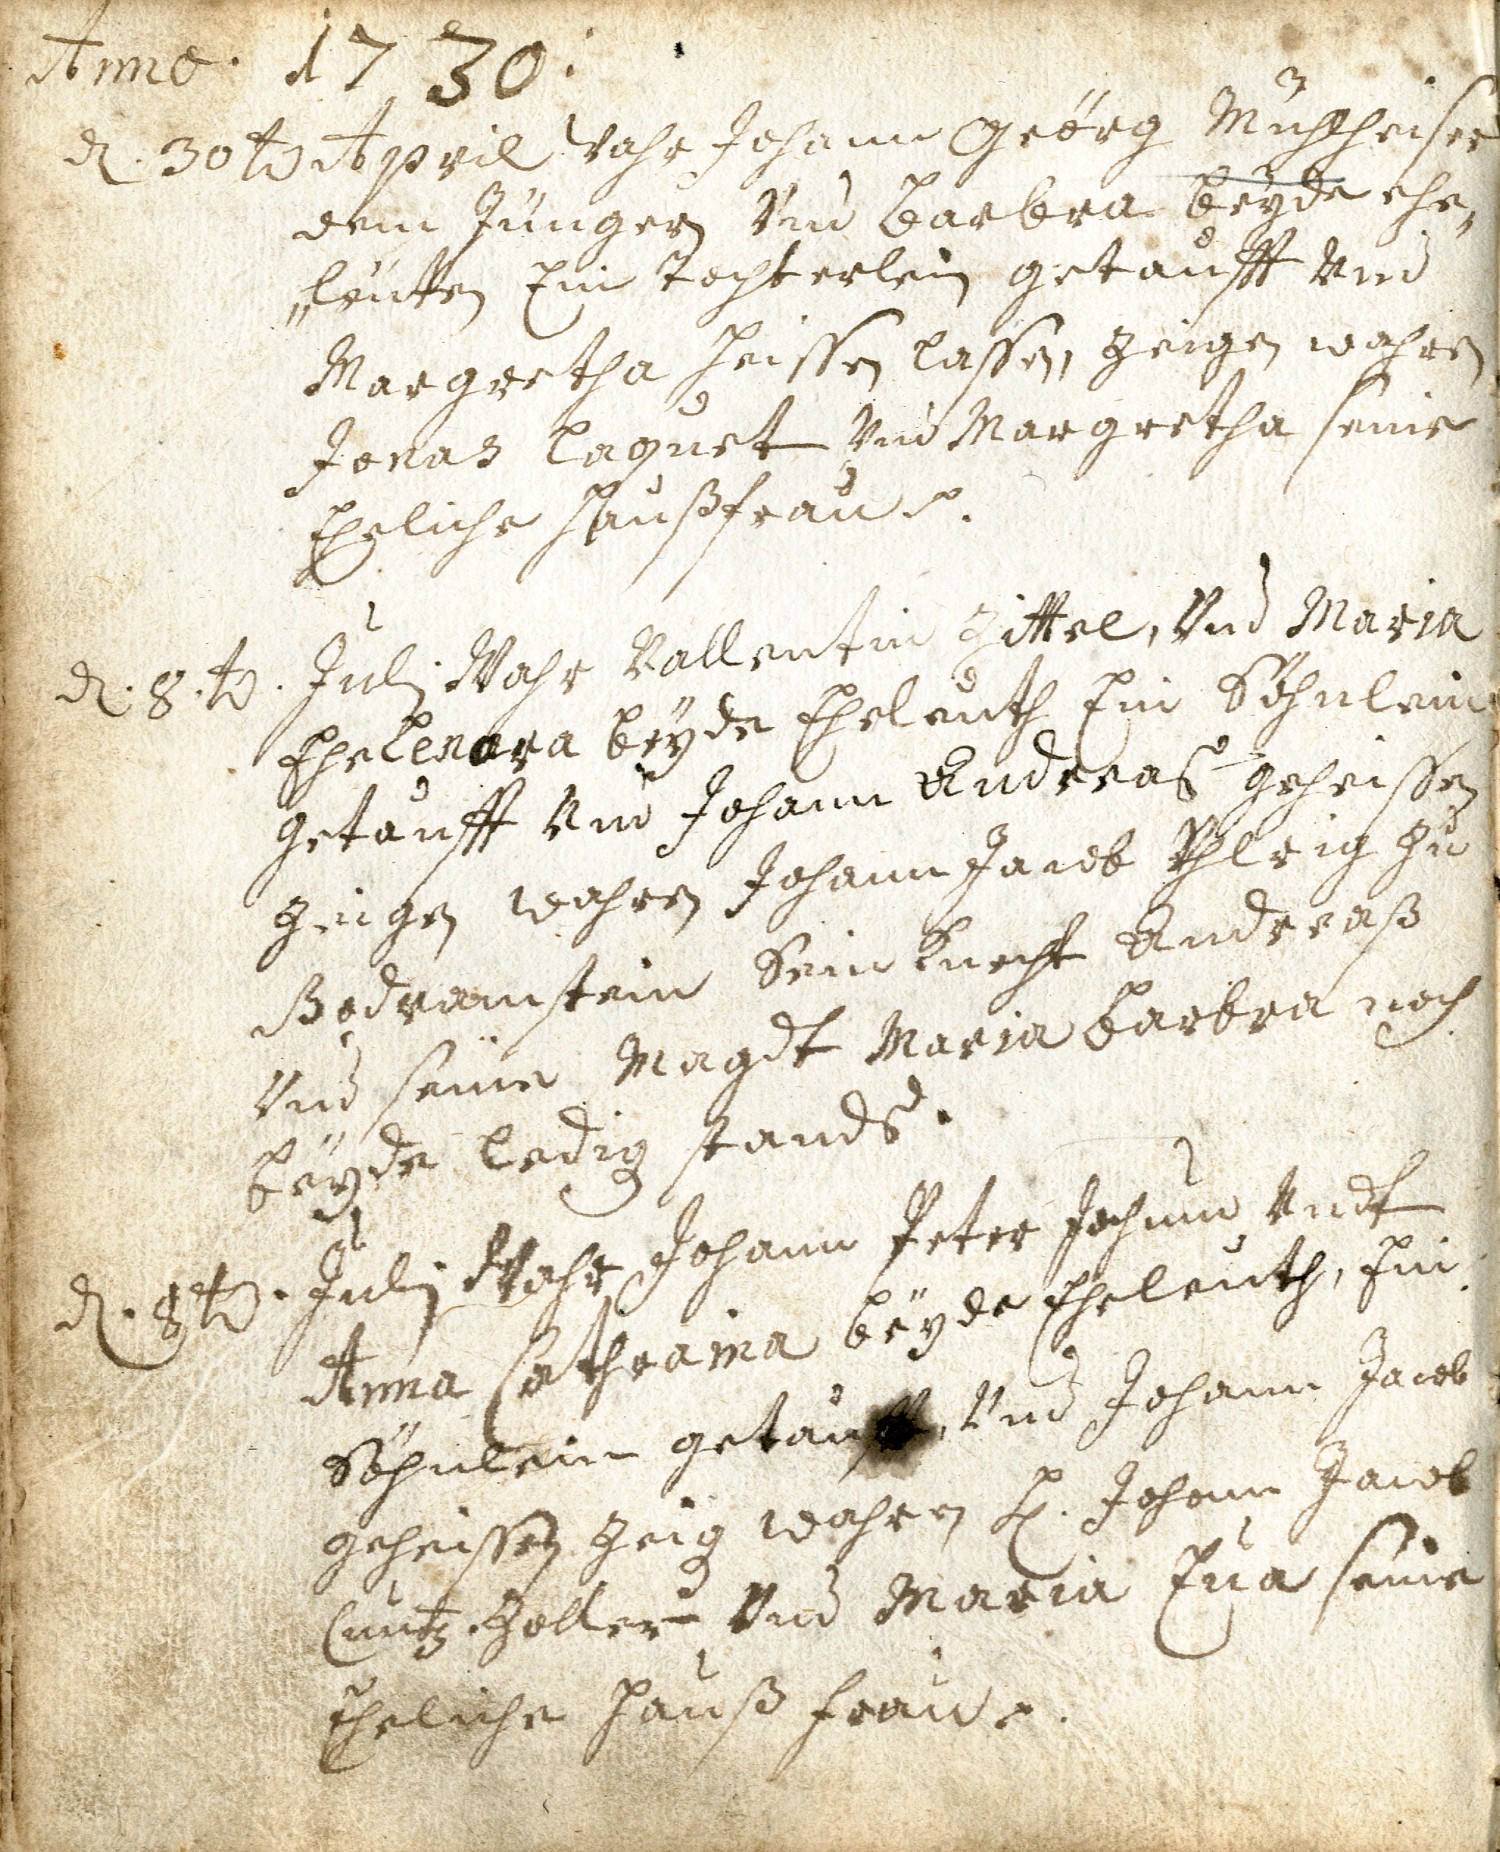 Anno. 1730.
d. 30tẽ April Wahr Johann Geörg Mühlheiser
dem Jüngern Vnd Barbra beÿde ehe„
„leutten Ein Tochterlein getaufft Vnd
Margretha heissen lassen, zeigen wahren
Jonas Laquet Vnd Margretha seine
Eheliche Haußfrau
d. 8.tẽ. Julj Wahr Vallentin Zittel, Vnd Maria
Ehelenora beÿde Eheleuth Ein Söhnlein
getaufft Vnd Johann Andreas geheissen
Zeigen wahren Johann Jacob Vhlrig Zu
Bodramstein Sein Knecht Andreaß
Vnd seine Magdt Maria Barbra noch
beÿde ledig stands.
d. 8tẽ. Julj Wahr Johann Peter Jochum Vndt
Anna Cathraina beÿde Eheleuth, Ein
Söhnlein getaufft, Vnd Johann Jacob
geheissen Zeig wahren H. Johann Jacob
Cuntz Zoller Vnd Maria Eua seine
Eheliche Hauß frau